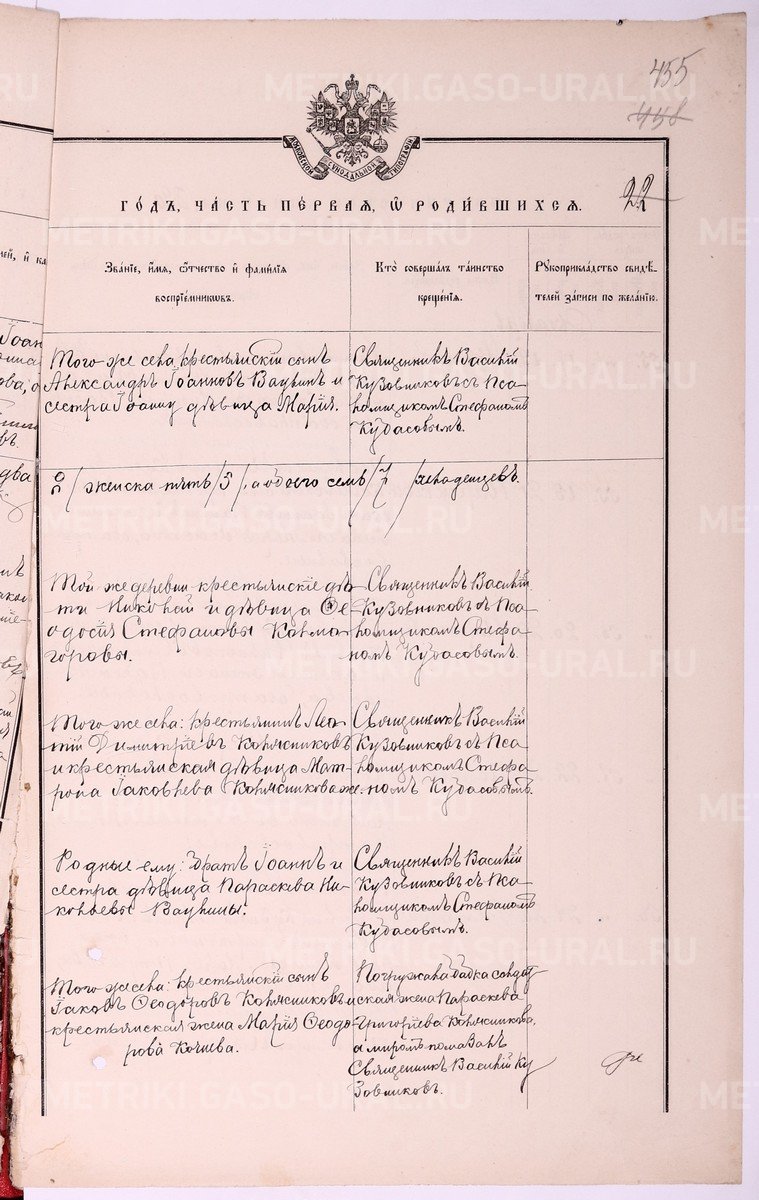 455
458
METRIKI.GASO-URAL.RU
МОСКОВСКОЙ СѴНОДАЛЬНОЙ ТИПОГРАФІИ
22
ГОДЪ, ЧАСТЬ ПЕРВАЯ, Ѡ РОДИВШИХСЯ.
Званіе, имя, отчество и фамилія воспріемниковъ.
Кто совершалъ таинство крещенія.
Рукоприкладство свидѣтелей записи по желанію.
Того же села, крестьянскій сынъ
Александръ Іоанновъ Вацкинъ и
сестра Іоанну дѣвица Марія.
Священникъ Василій
Кузовниковъ съ Пса-
ломщикомъ Стефаномъ
Кудасовымъ.
2/ женска пять /5/, а обоего семь /7/ младенцевъ.
Той же деревни крестьянскіе дѣ-
ти Николай и дѣвица Ѳе-
одосія Стефановы Колма-
горовы.
Священникъ Василій
Кузовниковъ съ Пса-
ломщикомъ Стефа-
номъ Кудасовымъ.
Того же села: крестьянинъ
Димитріевъ Колясниковъ
и крестьянская дѣвица Мат-
рона Іаковлева Колясникова же.
Священникъ Василій
Кузовниковъ съ Пса-
ломщикомъ Стефа-
номъ Кудасовымъ.
Родные ему: братъ Іоаннъ и
сестра дѣвица Параскева Ни-
колаевы
Священникъ Василій
Кузовниковъ съ Пса-
ломщикомъ Стефаномъ
Кудасовымъ.
Того же села: крестьянскій сынъ
Іаковъ Ѳеодоровъ Колясниковъ и
крестьянская жена Марія Ѳеодо-
рова Кочнева.
Погружала бабка солдат-
ская жена Параскева
Григоріева Колясникова,
а миромъ помазалъ
Священникъ Василій Ку-
зовниковъ.